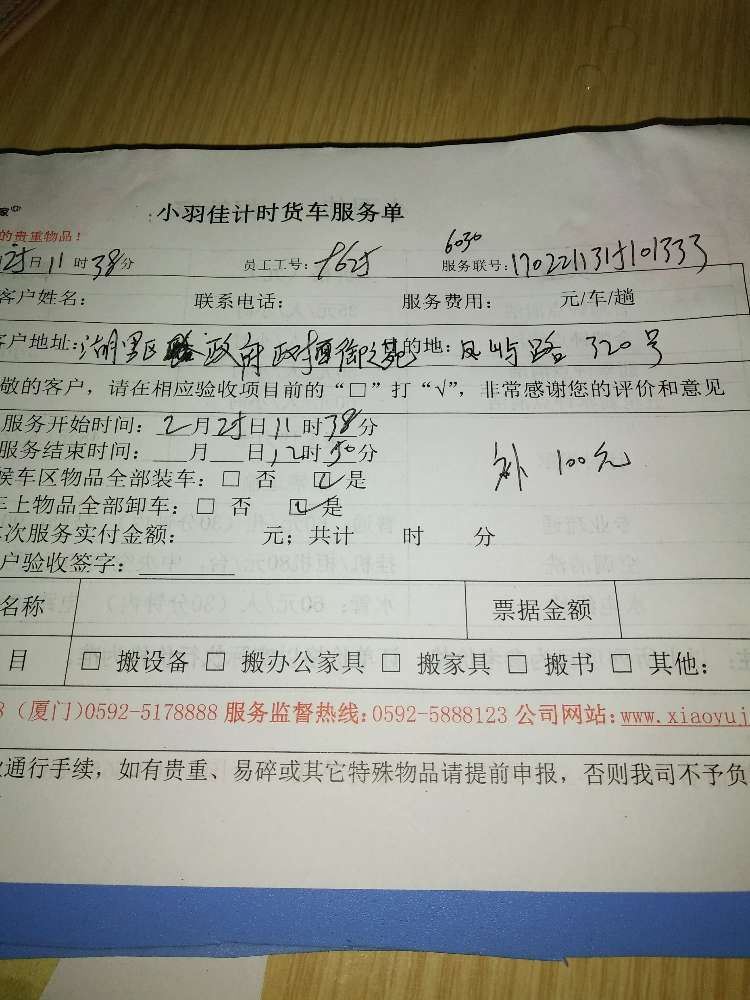 家
小羽佳计时货车服务单
的贵重物品！
25日11时38分 员工工号：9625 服务联号：1702211315101333
6030
客户姓名： 联系电话： 服务费用： 元/车/趟
客户地址：湖里区 政府 御 苑 的地：凤屿路320号
敬的客户，请在相应验收项目前的“□”打“√”，非常感谢您的评价和意见
服务开始时间：2月25日11时38分
服务结束时间： 月 日12时50分
补 100元
候车区物品全部装车：□ 否 ☑是
车上物品全部卸车：□ 否 ☑是
次服务实付金额： 元；共计 时 分
户验收签字：
名称 票据金额
目 □ 搬设备 □ 搬办公家具 □ 搬家具 □ 搬书 □ 其他：
8（厦门)0592-5178888 服务监督热线：0592-5888123 公司网站：www.xiaoyuj
通行手续，如有贵重、易碎或其它特殊物品请提前申报，否则我司不予负